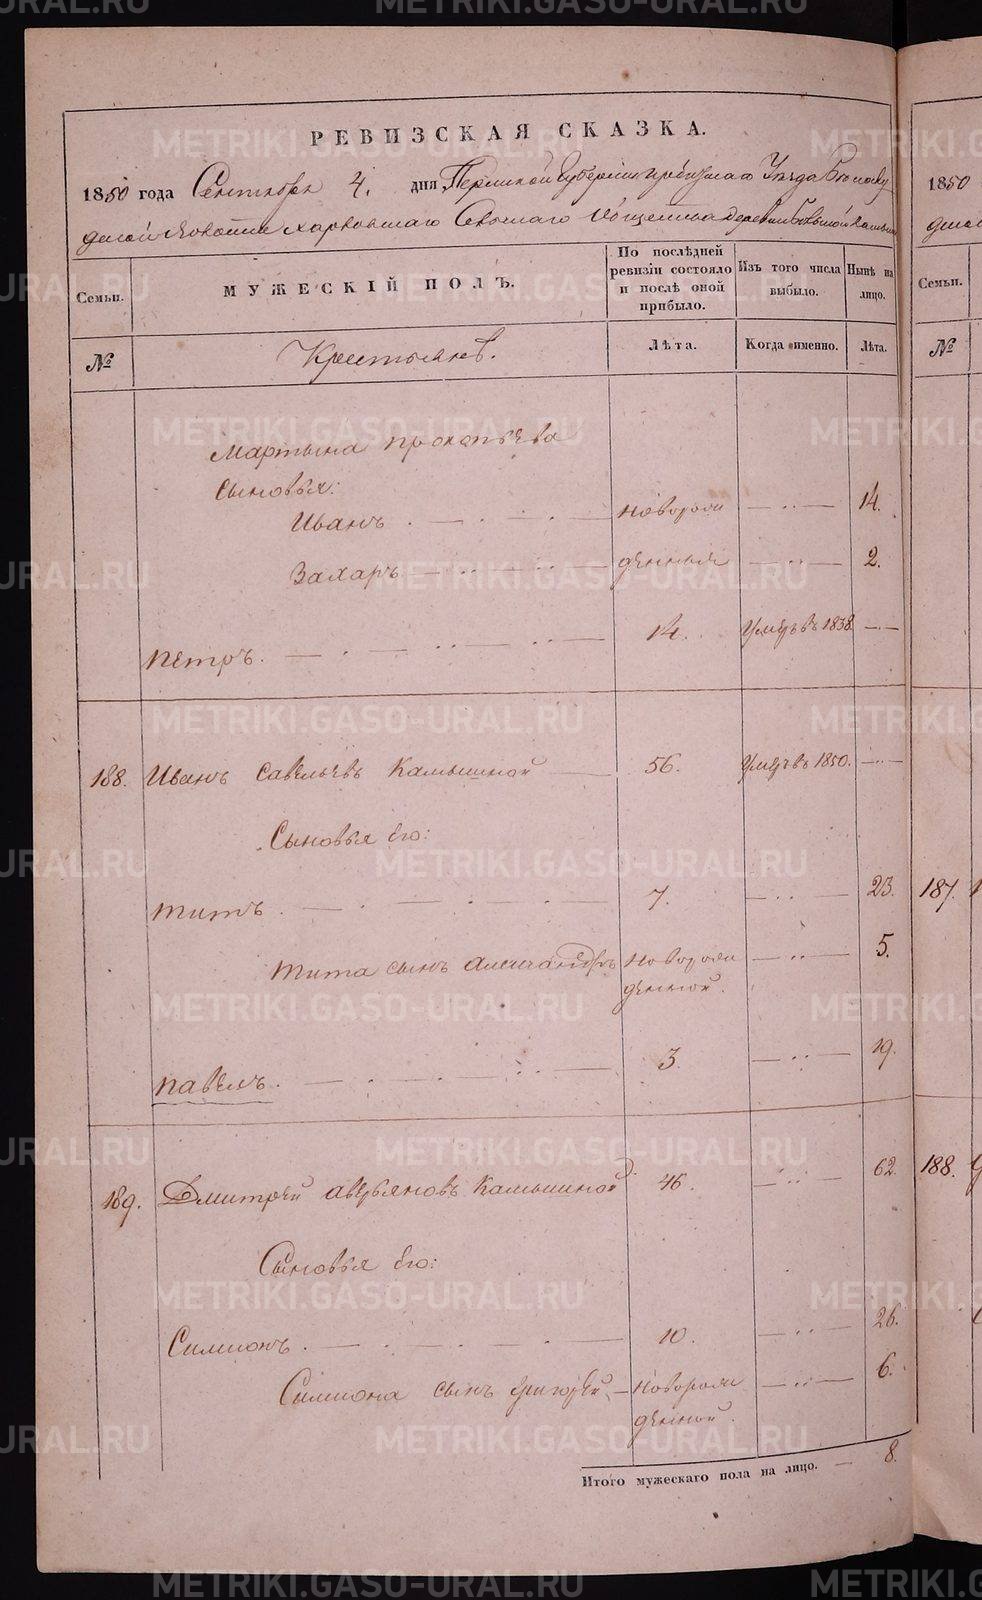 РЕВИЗСКАЯ СКАЗКА.
1850 года Сентября 4. дня Пермской Губернии Ирбитскаго Уезда
Харловскаго Сельскаго Общества деревни Большой
Семьи.
МУЖЕСКІЙ ПОЛЪ.
По послѣдней ревизіи состояло и послѣ оной прибыло.
Изъ того числа выбыло.
Нынѣ на лицо.
№
Крестьянъ.
Лѣта.
Когда именно.
Лѣта.
Мартына Прокопьева
Сыновья:
Иванъ новорож 14.
Захаръ денныя 2.
Петръ. 14. Умеръ въ 1838.
188. Иванъ Савельевъ Камышной 56. Умеръ въ 1850.
Сыновья его:
Титъ 7. 23.
Тита сынъ Александръ новорож 5.
денной.
Павелъ. 3. 19.
189. Дмитрей Аверьяновъ Камышной 46. 62.
Сыновья его:
Симионъ. 10. 26.
Симиона сынъ Григорей новорож 6.
денной.
Итого мужескаго пола на лицо. 8.
1850
Семьи.
№
187.
188.
METRIKI.GASO-URAL.RU